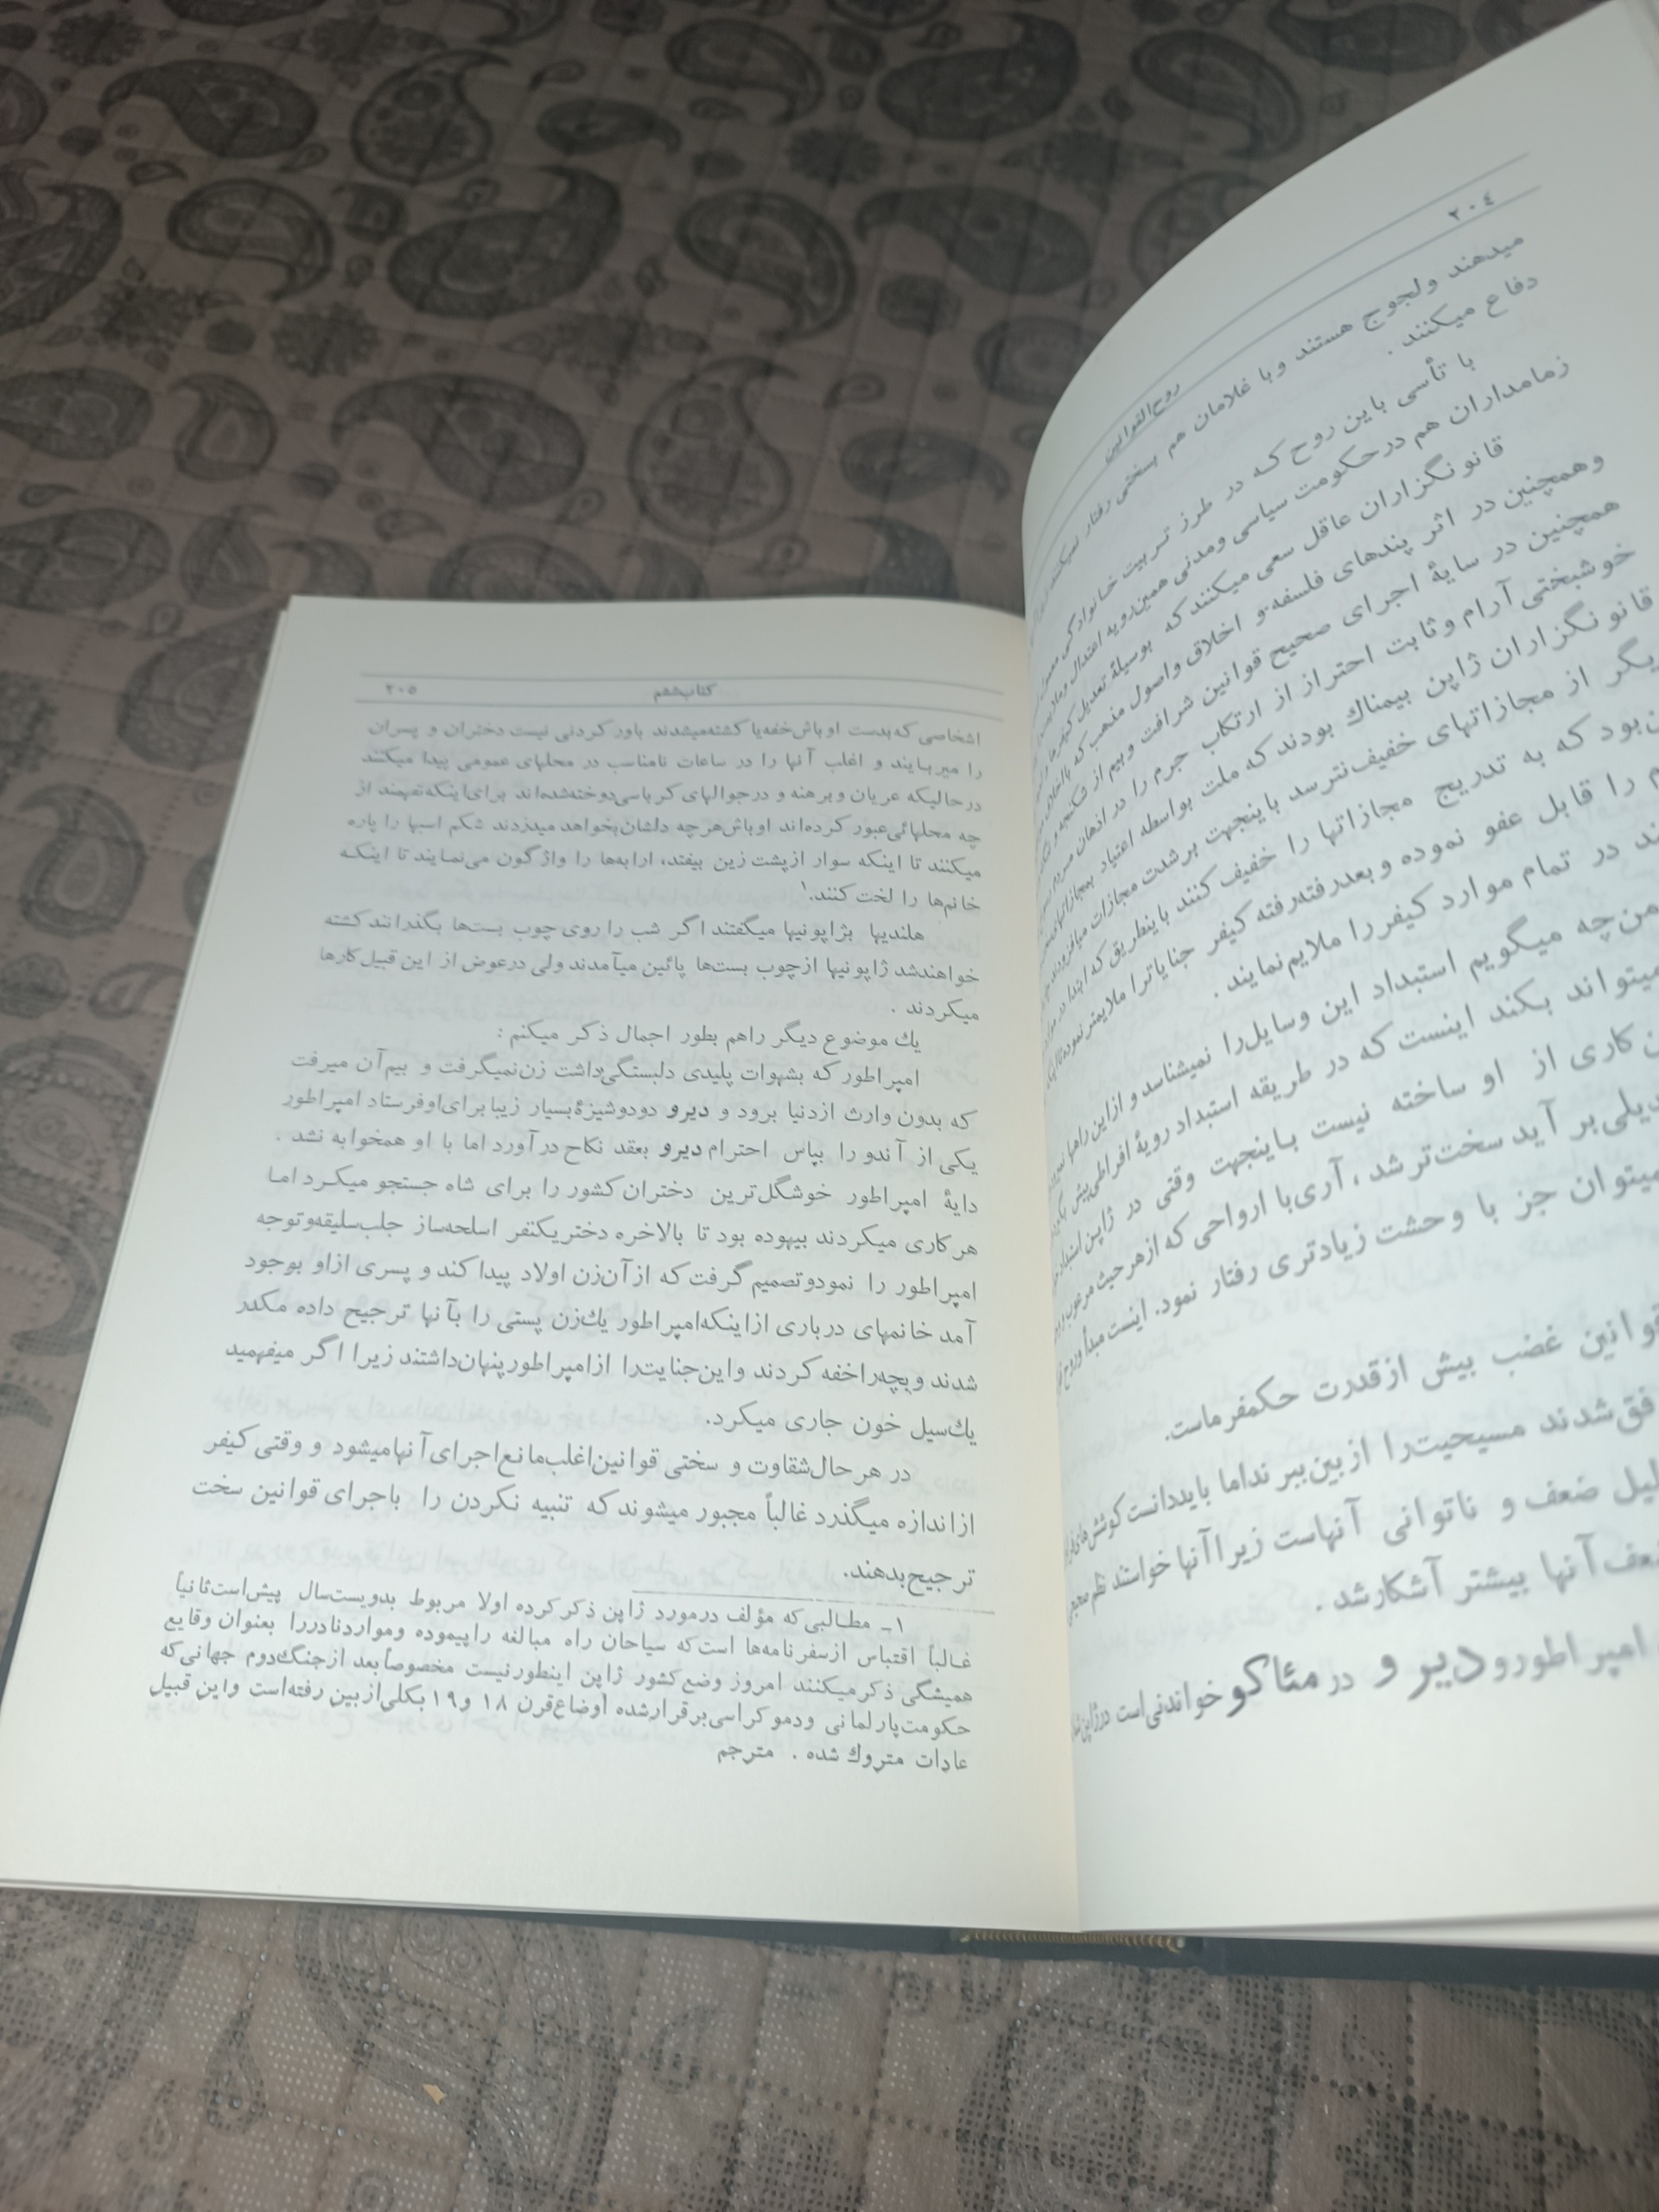 ۲۰٤
روح‌القوانین
میدهند ولجوج هستند وبا غلامان هم بسختی رفتار نمیکنند
دفاع میکنند .
با تأسی باین روح که در طرز تربیت خانوادگی
زمامداران هم درحکومت سیاسی ومدنی همین رویه اعتدال
قانونگزاران عاقل سعی میکنند که بوسیلهٔ تعدیل کیفرها
وهمچنین در اثر پندهای فلسفه و اخلاق واصول مذهب که بااخلاق
همچنین در سایهٔ اجرای صحیح قوانین شرافت وبیم از شکنجه
خوشبختی آرام وثابت احتراز از ارتکاب جرم را در اذهان مردم
قانونگزاران ژاپن بیمناك بودند که ملت بواسطه اعتیاد بمجازاتهای
دیگر از مجازاتهای خفیف‌نترسد باینجهت برشدت مجازات میافزودند
بود که به تدریج مجازاتها را خفیف کنند باینطریق که ابتدا در
را قابل عفو نموده وبعدرفته‌رفته کیفر جنایاترا ملایمترنموده
در تمام موارد کیفررا ملایم‌نمایند .
من‌چه میگویم استبداد این وسایل‌را نمیشناسد و ازاین راهها
میتواند بکند اینست که در طریقه استبداد رویهٔ افراطی‌پیش
کاری از او ساخته نیست باینجهت وقتی در ژاپن استبداد
بر آید سخت‌تر شد ، آری‌با ارواحی که ازهرحیث مرعوب
میتوان جز با وحشت زیادتری رفتار نمود. اینست مبدأ وروح
قوانین غضب بیش ازقدرت حکمفرماست.
شدند مسیحیت‌را ازبین‌ببرنداما بایددانست کوشش‌های
ضعف و ناتوانی آنهاست زیراآنها خواستند نظم
آنها بیشتر آشکارشد .
امپراطورودیر و در مئاکو خواندنی‌است
کتاب‌ششم
۲۰۵
اشخاصی که‌بدست اوباش‌خفه‌یا کشته‌میشدند باور کردنی نیست دختران و پسران
را میربایند و اغلب آنها را در ساعات نامناسب در محلهای عمومی پیدا میکنند
درحالیکه عریان وبرهنه و درجوالهای کرباسی‌دوخته‌شده‌اند برای‌اینکه‌نفهمند از
چه محلهائی‌عبور کرده‌اند اوباش‌هرچه دلشان‌بخواهد میدزدند شکم اسبها را پاره
میکنند تا اینکه سوار ازپشت زین بیفتد، ارابه‌ها را واژگون می‌نمایند تا اینکه
خانم‌ها را لخت کنند.۱
هلندیها بژاپونیها میگفتند اگر شب را روی چوب بست‌ها بگذرانند کشته
خواهندشد ژاپونیها ازچوب بست‌ها پائین میآمدند ولی درعوض از این قبیل‌کارها
میکردند .
یك موضوع دیگر راهم بطور اجمال ذکر میکنم :
امپراطور که بشهوات پلیدی دلبستگی‌داشت زن‌نمیگرفت و بیم‌آن میرفت
که بدون وارث ازدنیا برود و دیرو دودوشیزهٔ‌بسیار زیبا برای‌اوفرستاد امپراطور
یکی از آندو را بپاس احترام دیرو بعقد نکاح درآورد اما با او همخوابه نشد .
دایهٔ امپراطور خوشگل‌ترین دختران‌کشور را برای شاه جستجو میکرد اما
هرکاری میکردند بیهوده بود تا بالاخره دختریکنفر اسلحه‌ساز جلب‌سلیقه‌وتوجه
امپراطور را نمودوتصمیم گرفت‌که ازآن‌زن اولاد پیدا کند و پسری ازاو بوجود
آمد خانمهای درباری ازاینکه‌امپراطور یك‌زن پستی را بآنها ترجیح داده مکدر
شدند وبچه‌راخفه کردند واین‌جنایت‌را ازامپراطورپنهان‌داشتند زیرا اگر میفهمید
یك‌سیل خون جاری میکرد.
در هرحال‌شقاوت و سختی قوانین‌اغلب‌مانع‌اجرای‌آنهامیشود و وقتی کیفر
ازاندازه میگذرد غالباً مجبور میشوندکه تنبیه نکردن را باجرای قوانین سخت
ترجیح‌بدهند.
۱ـ مطالبی‌که مؤلف درمورد ژاپن ذکرکرده اولا مربوط بدویست‌سال پیش‌است‌ثانیاً
غالباً اقتباس ازسفرنامه‌ها است‌که سیاحان راه مبالغه راپیموده ومواردنادررا بعنوان وقایع
همیشگی ذکرمیکنند امروز وضع‌کشور ژاپن اینطورنیست مخصوصاًبعد ازجنگ‌دوم جهانی‌که
حکومت‌پارلمانی ودموکراسی‌برقرارشده اوضاع‌قرن ۱۸ و۱۹بکلی‌ازبین رفته‌است واین قبیل
عادات متروك شده . مترجم